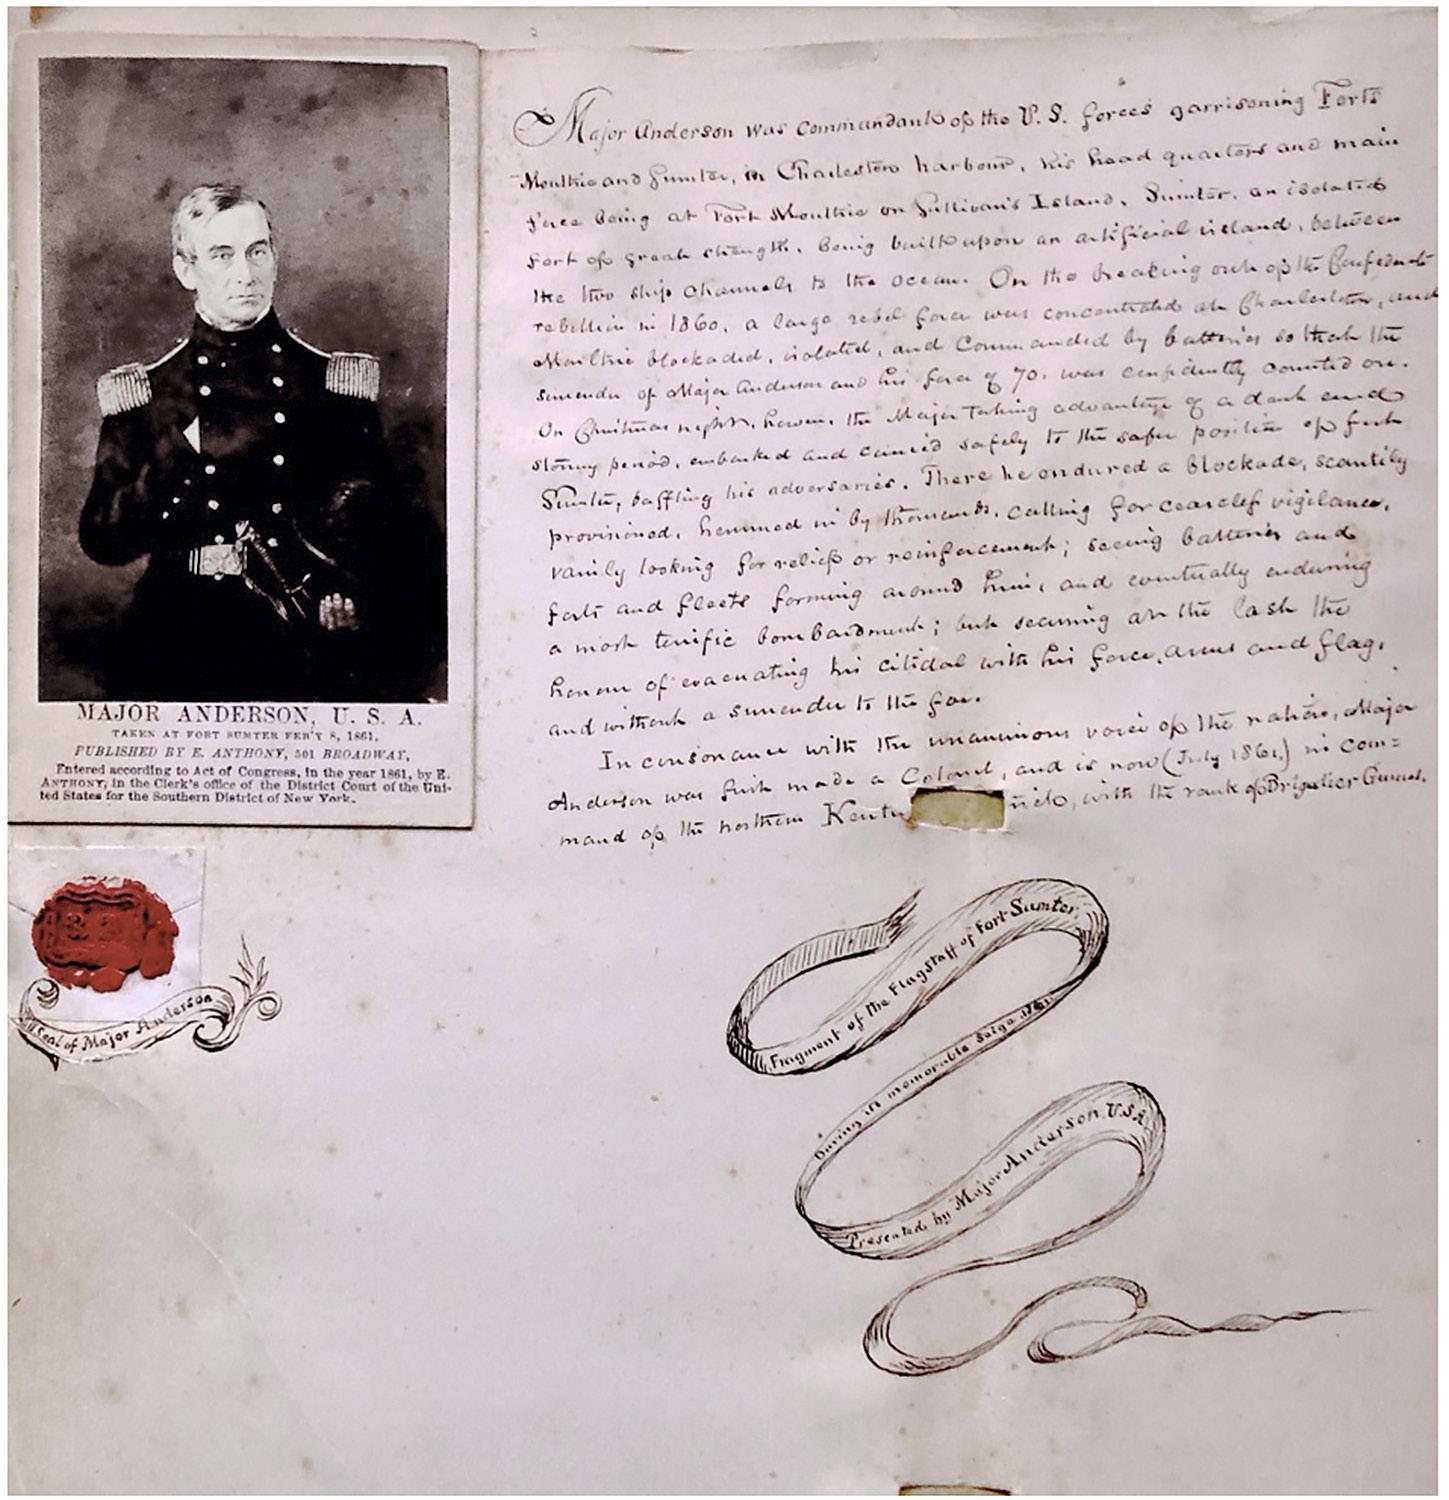 MAJOR ANDERSON, U. S. A.
TAKEN AT FORT SUMTER FEB'Y 8, 1861,
PUBLISHED BY E. ANTHONY, 501 BROADWAY,
Entered according to Act of Congress, in the year 1861, by E.
ANTHONY, in the Clerk's office of the District Court of the Uni-
ted States for the Southern District of New York.
Major Anderson was Commandant of the U. S. forces garrisoning Forts
Moultrie and Sumter, in Charleston harbour, his head quarters and main
force being at Fort Moultrie on Sullivan's Island. Sumter, an isolated
fort of great strength, being built upon an artificial island, between
the two ship channels to the ocean. On the breaking out of the Confederate
rebellion in 1860, a large rebel force was concentrated at Charleston, and
Moultrie blockaded, isolated, and commanded by batteries so that the
surrender of Major Anderson and his force of 70. was confidently counted on.
On Christmas night, however, the Major taking advantage of a dark and
stormy period, embarked and carried safely to the safer position of fort
Sumter, baffling his adversaries. There he endured a blockade, scantily
provisioned, hemmed in by thousands, calling for ceaseless vigilance,
vainly looking for relief or reinforcement; seeing batteries and
forts and fleets forming around him, and eventually enduring
a most terrific bombardment; but securing at the last the
honour of evacuating his citidal with his force, arms and flag,
and without a surrender to the foe.
In consonance with the unanimous voice of the nation, Major
Anderson was first made a Colonel, and is now (July 1861,) in com=
mand of the northern with the rank of Brigadier General.
Seal of Major Anderson
Fragment of the Flagstaff of Fort Sumter
During its memorable Seige 1861
Presented by Major Anderson, USA